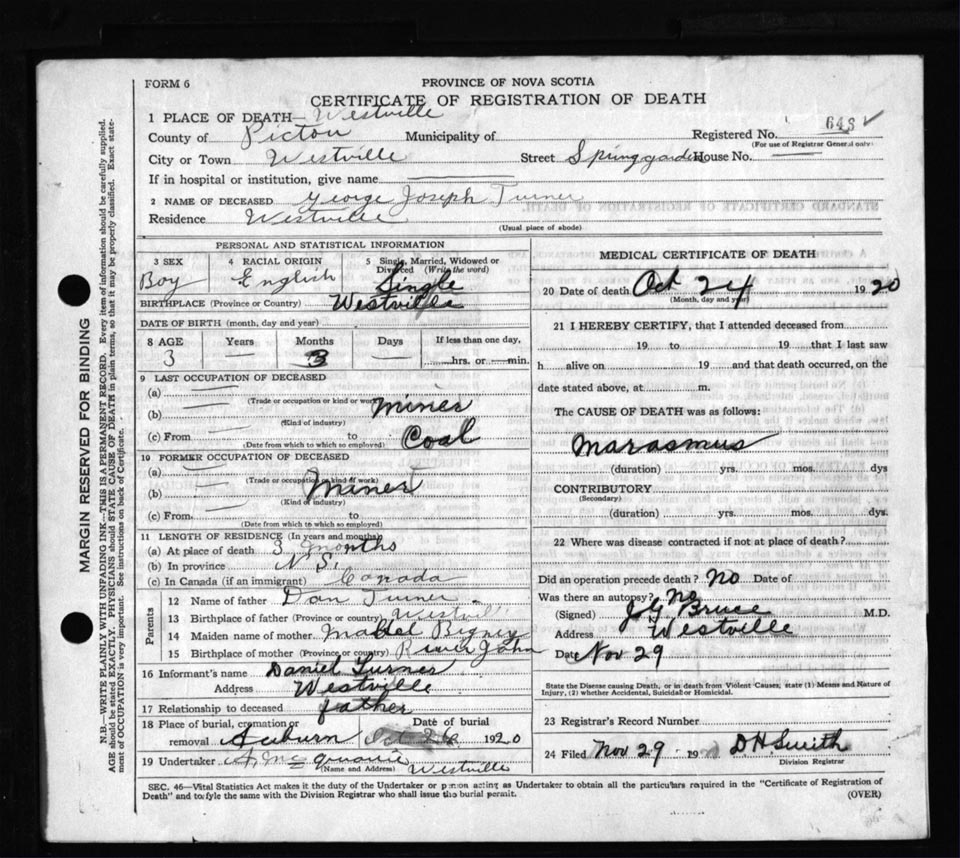 FORM 6
PROVINCE OF NOVA SCOTIA
CERTIFICATE OF REGISTRATION OF DEATH
1 PLACE OF DEATH— Westville
County of Pictou Municipality of Registered No. 648
(For use of Registrar General only)
City or Town Westville Street Spring garden House No. —
If in hospital or institution, give name —
2 NAME OF DECEASED George Joseph Turner
Residence Westville
(Usual place of abode)
PERSONAL AND STATISTICAL INFORMATION
3 SEX 4 RACIAL ORIGIN 5 Single, Married, Widowed or Divorced (Write the word)
Boy English Single
BIRTHPLACE (Province or Country) Westville
DATE OF BIRTH (month, day and year)
8 AGE Years Months Days If less than one day,
3 — 3 — hrs. or min.
9 LAST OCCUPATION OF DECEASED
(a) —
(Trade or occupation or kind or work)
(b) — Miner
(Kind of industry)
(c) From to Coal
(Date from which to which so employed)
10 FORMER OCCUPATION OF DECEASED
(a) —
(Trade or occupation or kind of work)
(b) — Miner
(Kind of industry)
(c) From to
(Date from which to which so employed)
11 LENGTH OF RESIDENCE (In years and months)
(a) At place of death 3 months
(b) In province N.S.
(c) In Canada (if an immigrant) Canada
Parents
12 Name of father Dan Turner
13 Birthplace of father (Province or country) Westville
14 Maiden name of mother Mabel Bigney
15 Birthplace of mother (Province or country) River John
16 Informant's name Daniel Turner
Address Westville
17 Relationship to deceased father
18 Place of burial, cremation or removal Auburn Date of burial Oct 26 1920
19 Undertaker Westville
(Name and Address)
MEDICAL CERTIFICATE OF DEATH
20 Date of death Oct 24 1920
(Month, day and year)
21 I HEREBY CERTIFY, that I attended deceased from
19 to 19 that I last saw
h alive on 19 and that death occurred, on the
date stated above, at m.
The CAUSE OF DEATH was as follows:
Marasmus
(duration) yrs. mos. dys
CONTRIBUTORY
(Secondary)
(duration) yrs. mos. dys.
22 Where was disease contracted if not at place of death?
Did an operation precede death? No Date of
Was there an autopsy? No
(Signed) Bruce M.D.
Address Westville
Date Nov 29
State the Disease causing Death, or in death from Violent Causes, state (1) Means and Nature of
Injury, (2) whether Accidental, Suicidal or Homicidal.
23 Registrar's Record Number
24 Filed Nov 29 19 D H Smith
Division Registrar
SEC. 46—Vital Statistics Act makes it the duty of the Undertaker or person acting as Undertaker to obtain all the particulars required in the "Certificate of Registration of
Death" and to fyle the same with the Division Registrar who shall issue the burial permit.
(OVER)
MARGIN RESERVED FOR BINDING
N.B.—WRITE PLAINLY WITH UNFADING INK—THIS IS A PERMANENT RECORD. Every item of information should be carefully supplied.
AGE should be stated EXACTLY. PHYSICIANS should STATE CAUSE OF DEATH in plain terms, so that it may be properly classified. Exact state-
ment of OCCUPATION is very important. See instructions on back of Certificate.